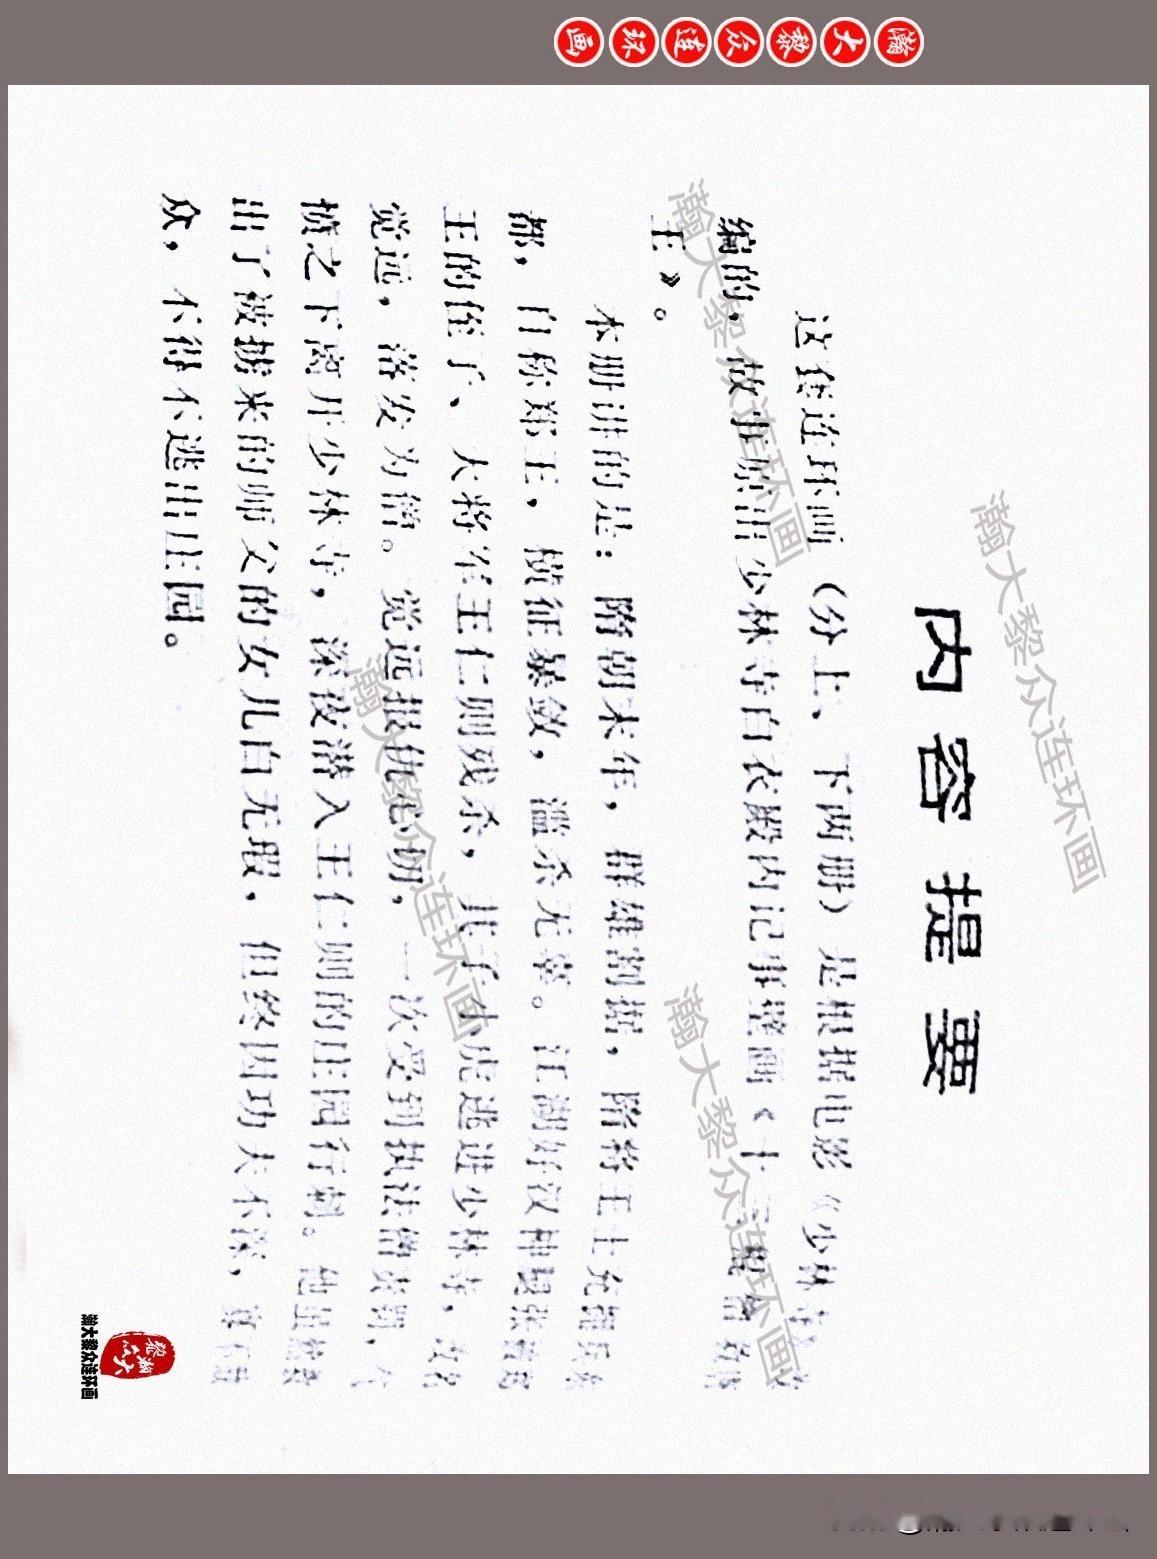 瀚大黎众连环画
内容提要
这套连环画（分上、下两册）是根据电影《少林
编的，故事原出少林寺白衣殿内记事壁画《十三
王》。
本册讲的是：隋朝末年，群雄割据，隋将王士充
都，自称郑王，横征暴敛，滥杀无辜。江湖好汉神腿张
王的侄子、大将军王仁则残杀，其子小虎逃进少林寺，
觉远，落发为僧。觉远报仇心切，一次受到执法僧责罚，
愤之下离开少林寺，深夜潜入王仁则的庄园行刺。他虽然救
出了被掳来的师父的女儿白无瑕，但终因功夫不深，寡不敌
众，不得不逃出庄园。
瀚大黎众连环画
瀚大黎众连环画
瀚大黎众连环画
瀚大黎众连环画
瀚大黎众连环画